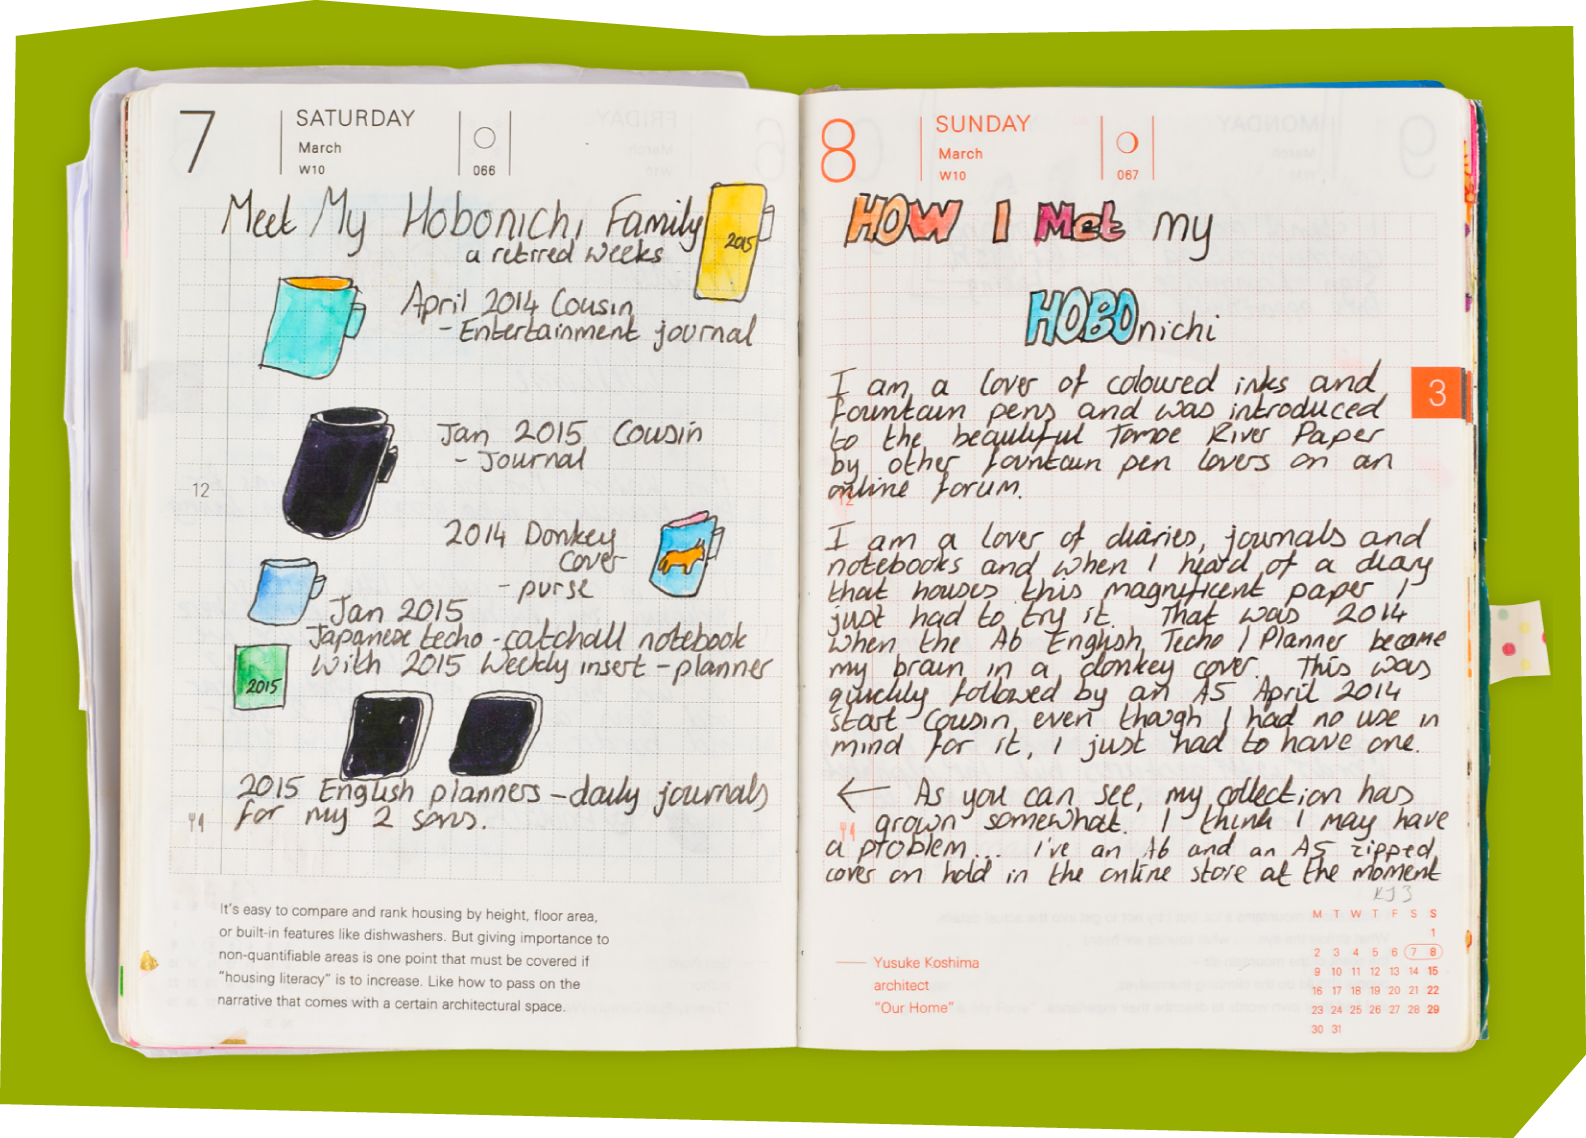 7
SATURDAY
March
W10
066
Meet My Hobonichi Family
a retired weeks
2015
April 2014 Cousin
- Entertainment journal
Jan 2015 Cousin
- Journal
12
2014 Donkey
Cover
- purse
Jan 2015
Japanese techo - catchall notebook
with 2015 Weekly insert - planner
2015
2015 English planners - daily journals
for my 2 sons.
It's easy to compare and rank housing by height, floor area,
or built-in features like dishwashers. But giving importance to
non-quantifiable areas is one point that must be covered if
"housing literacy" is to increase. Like how to pass on the
narrative that comes with a certain architectural space.
8
SUNDAY
March
W10
067
HOW I Met my
HOBOnichi
3
I am a lover of coloured inks and
fountain pens and was introduced
to the beautiful Tomoe River Paper
by other fountain pen lovers on an
online forum.
12
I am a lover of diaries, journals and
notebooks and when I heard of a diary
that houses this magnificent paper I
just had to try it. That was 2014
when the A6 English Techo / Planner became
my brain in a donkey cover. This was
quickly followed by an A5 April 2014
start Cousin, even though I had no use in
mind for it, I just had to have one.
← As you can see, my collection has
grown somewhat. I think I may have
a problem... I've an A6 and an A5 zipped
cover on hold in the online store at the moment
Yusuke Koshima
architect
"Our Home"
M T W T F S S
1
2 3 4 5 6 7 8
9 10 11 12 13 14 15
16 17 18 19 20 21 22
23 24 25 26 27 28 29
30 31